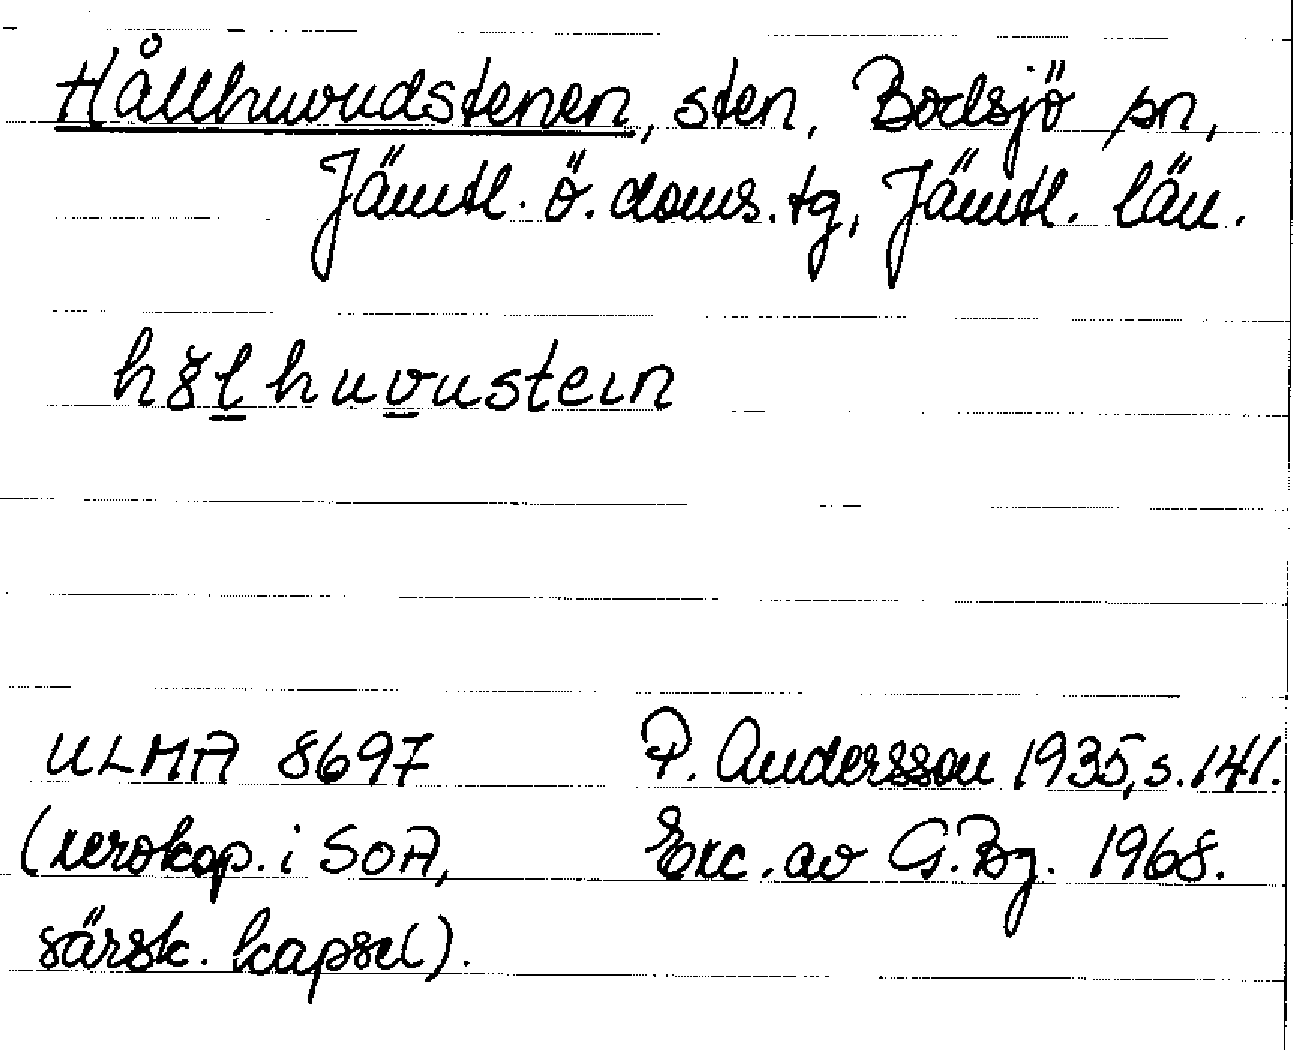 Hållhuvudstenen, sten, Bodsjö sn,
Jämtl. ö. doms. tg, Jämtl. län.
ULMA 8697 P. Andersson 1935, s. 141.
(xerokop. i SOA, Exc. av G. Bg. 1968.
särsk. kapsel).